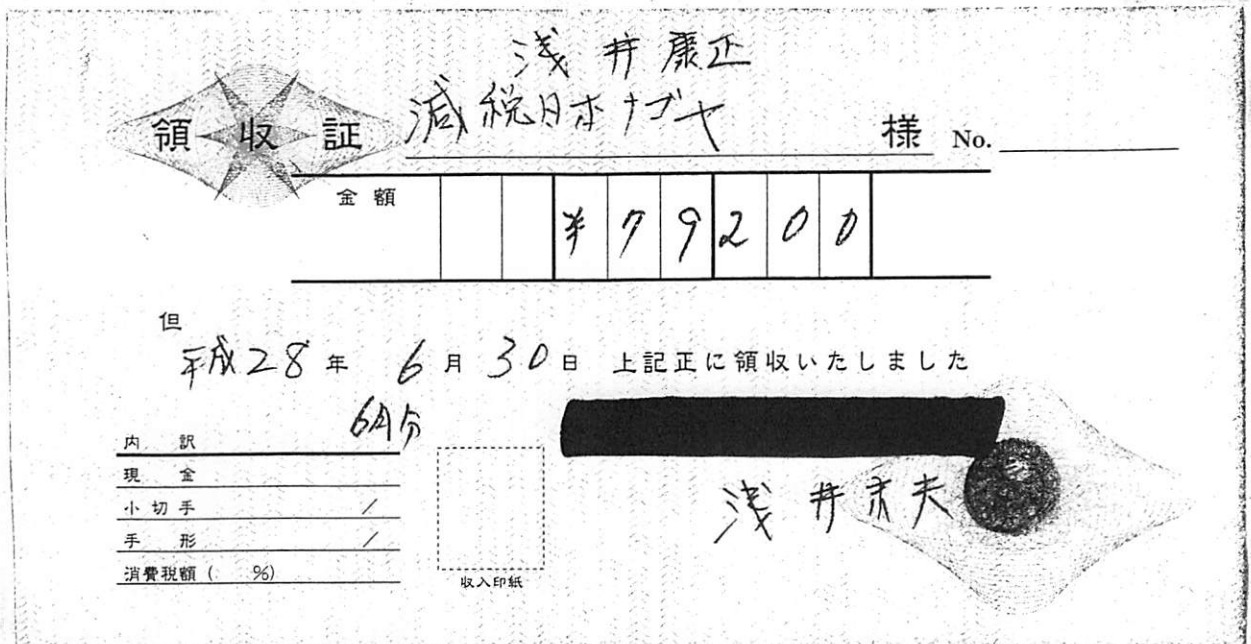 浅井康正
領収証 減税日本ナゴヤ 様 No.
金額 ¥79200
但
平成28年 6月30日 上記正に領収いたしました
6月分
内訳
現金
小切手 /
手形 /
消費税額( %)
収入印紙
浅井 夫